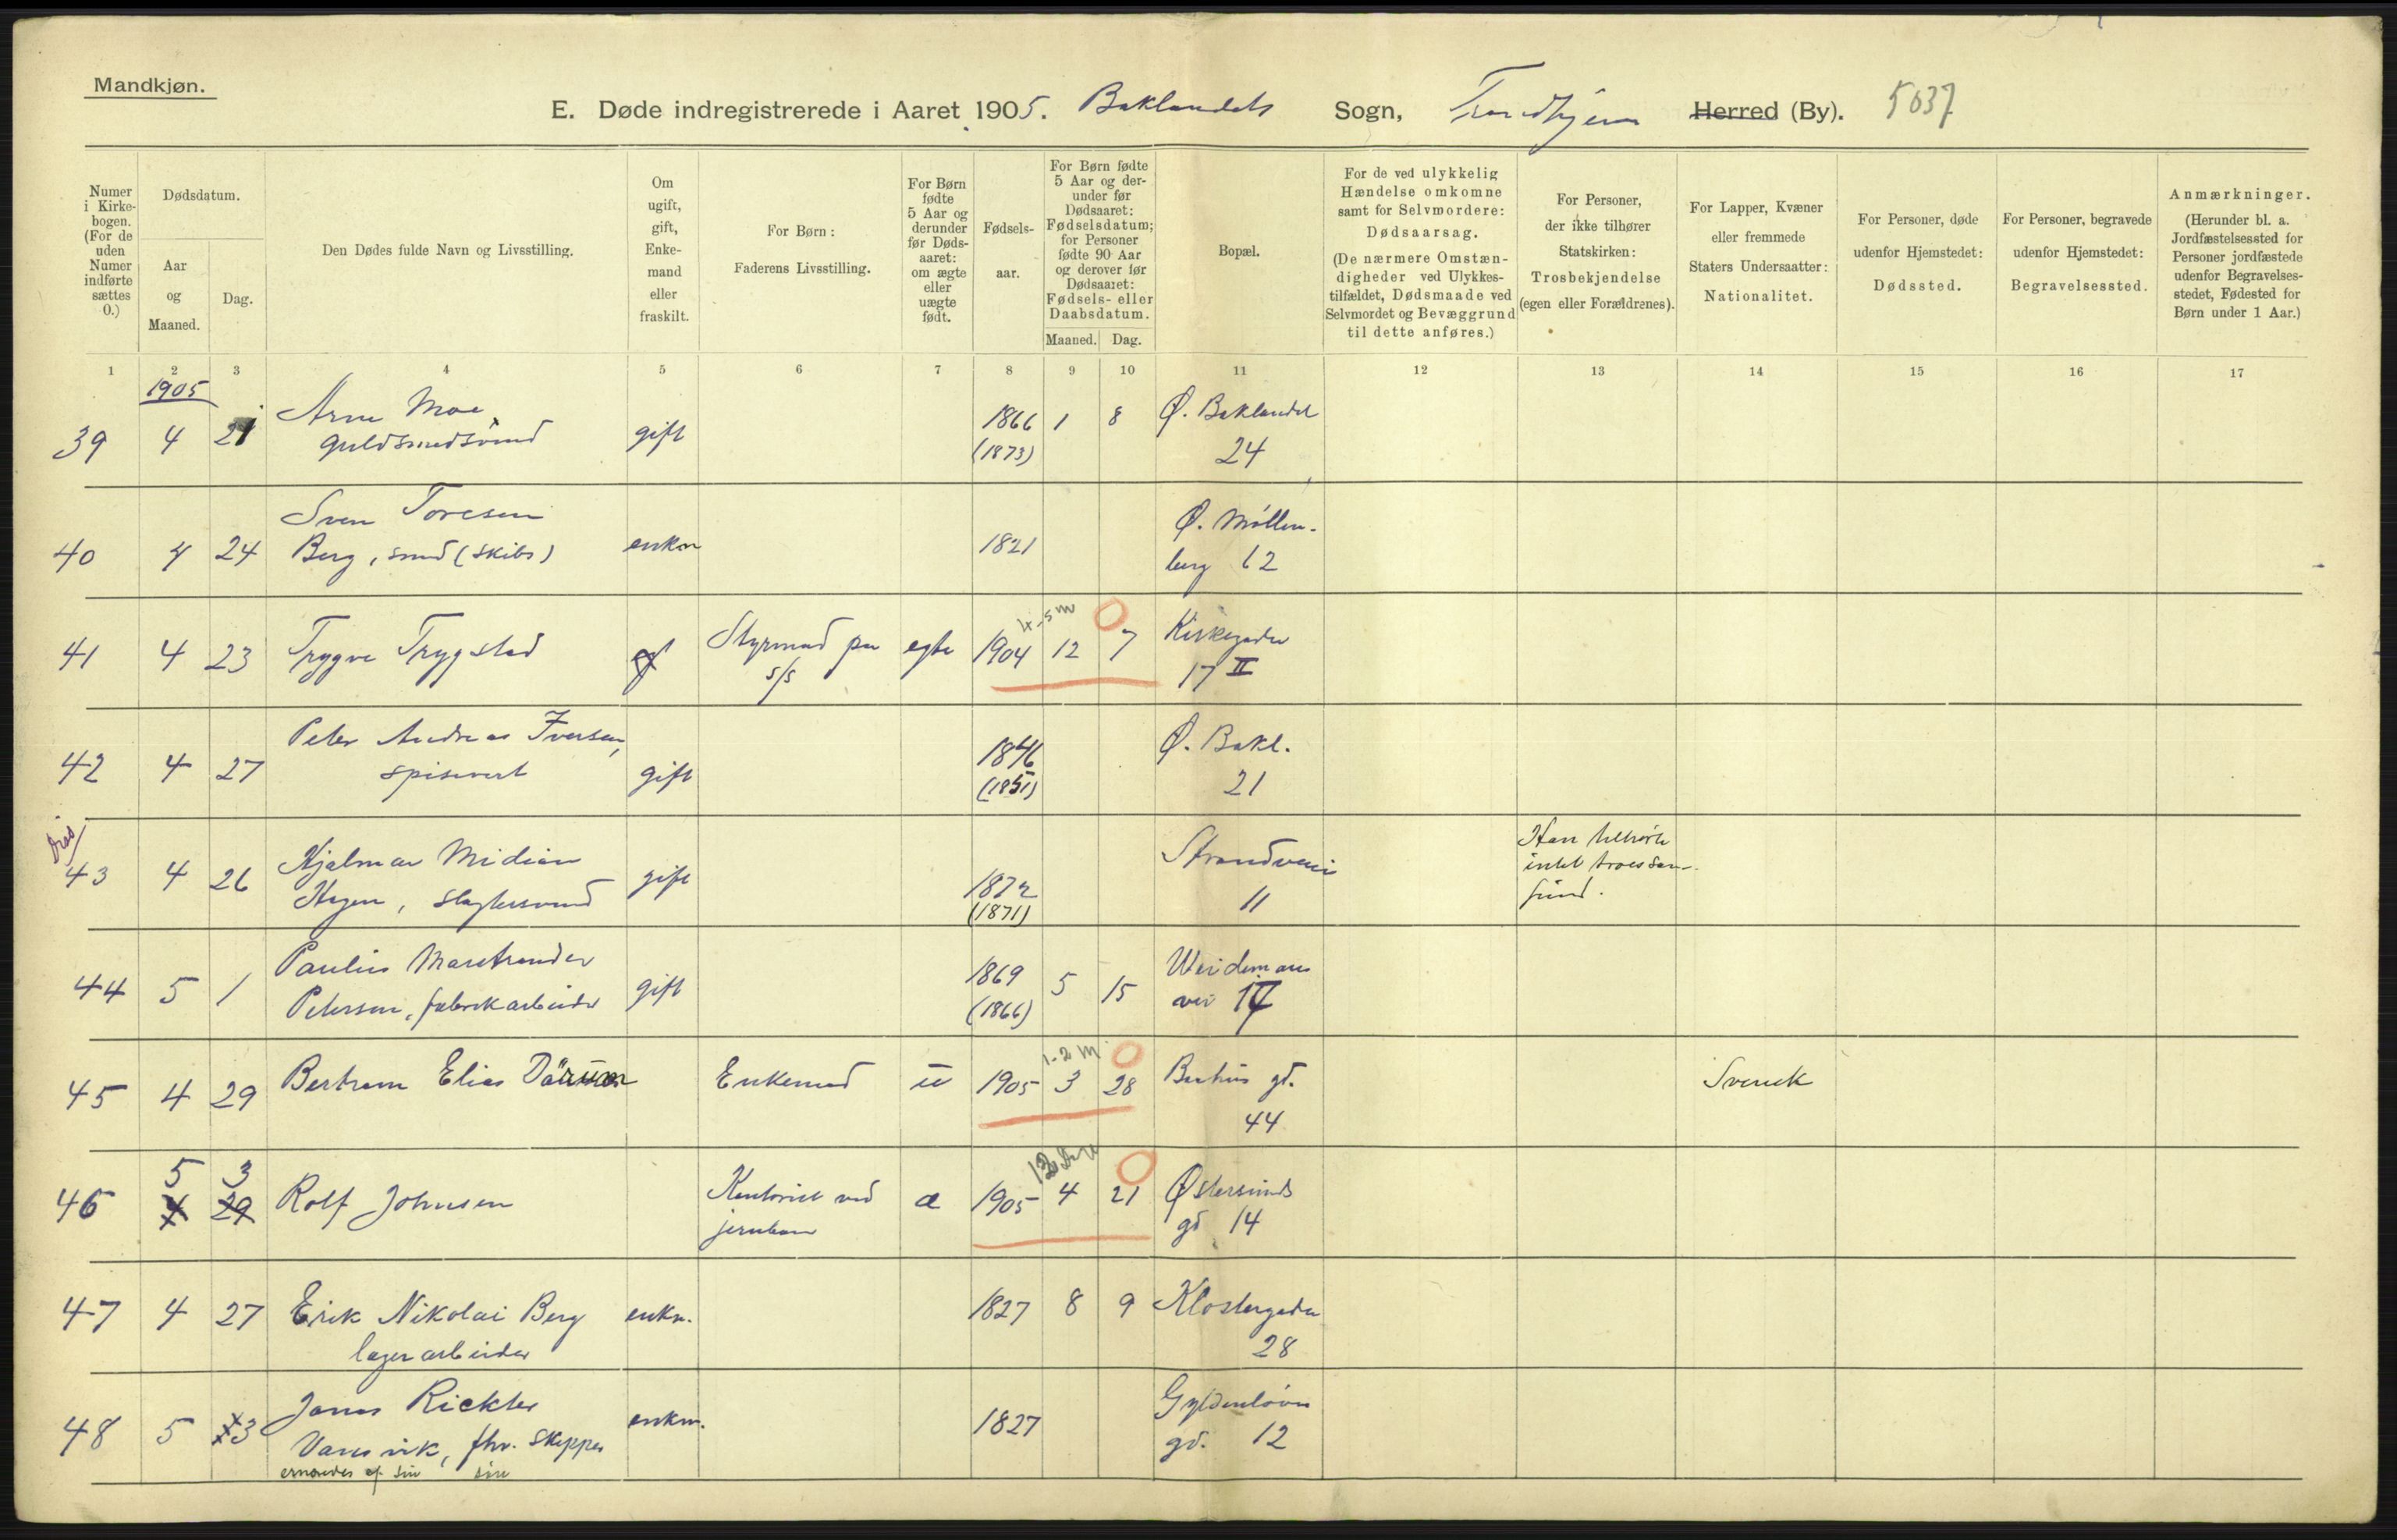 Mandkjøn.
E. Døde indregistrerede i Aaret 1905. Baklandets Sogn, Trondhjem Herred (By). 5037
Numer i Kirkebogen. (For de uden Numer indførte sættes 0.)
Dødsdatum.
Aar og Maaned.
Dag.
Den Dødes fulde Navn og Livsstilling.
Om ugift, gift, Enkemand eller fraskilt.
For Børn:
Faderens Livsstilling.
For Børn fødte 5 Aar og derunder før Dødsaaret: om ægte eller uægte født.
Fødselsaar.
For Børn fødte 5 Aar og derunder før Dødsaaret: Fødselsdatum; for Personer fødte 90 Aar og derover før Dødsaaret: Fødsels- eller Daabsdatum.
Maaned. Dag.
Bopæl.
For de ved ulykkelig Hændelse omkomne samt for Selvmordere: Dødsaarsag.
(De nærmere Omstændigheder ved Ulykkestilfældet, Dødsmaade ved Selvmordet og Bevæggrund til dette anføres.)
For Personer, der ikke tilhører Statskirken: Trosbekjendelse (egen eller Forældrenes).
For Lapper, Kvæner eller fremmede Staters Undersaatter: Nationalitet.
For Personer, døde udenfor Hjemstedet: Dødssted.
For Personer, begravede udenfor Hjemstedet: Begravelsessted.
Anmærkninger.
(Herunder bl. a. Jordfæstelsessted for Personer jordfæstede udenfor Begravelsesstedet, Fødested for Børn under 1 Aar.)
1 2 3 4 5 6 7 8 9 10 11 12 13 14 15 16 17
1905
39 4 21 Arne Moe, guldsmedsvend gift 1866 (1873) 1 8 Ø. Baklandet 24
40 4 24 Sven Toresen Berg, smed (skibs) enkm 1821 Ø. Møllenberg 12
41 4 23 Trygve Trygstad Styrmand paa s/s egte 1904 12 7 4-5 m 0 Kirkegaden 17 II
42 4 27 Peter Andreas Iversen, spisevert gift 1846 (1851) Ø. Bakl. 21
43 4 26 Hjalmar Midian Hagen, slagtersvend gift 1872 (1871) Strandveien 11 Han tilhørte intet troessamfund.
44 5 1 Paulius Marstrander Petersen, fabrikarbeider gift 1869 (1866) 5 15 Weidemans vei 17
45 4 29 Bertram Elias Enkemand u 1905 3 28 1-2 m 0 Bakhus gd. 44 Svensk
46 5 3 4 29 Rolf Johnsen Kontorist ved jernbanen æ 1905 4 21 0 Østersunds gd 14
47 4 27 Erik Nikolai Berg lagerarbeider enkm. 1827 8 9 Klostergaden 28
48 5 3 Jonas Rickter Vansvik, fhv. skipper enkm. 1827 Gyldenløves gd. 12
ernæredes af sin søn